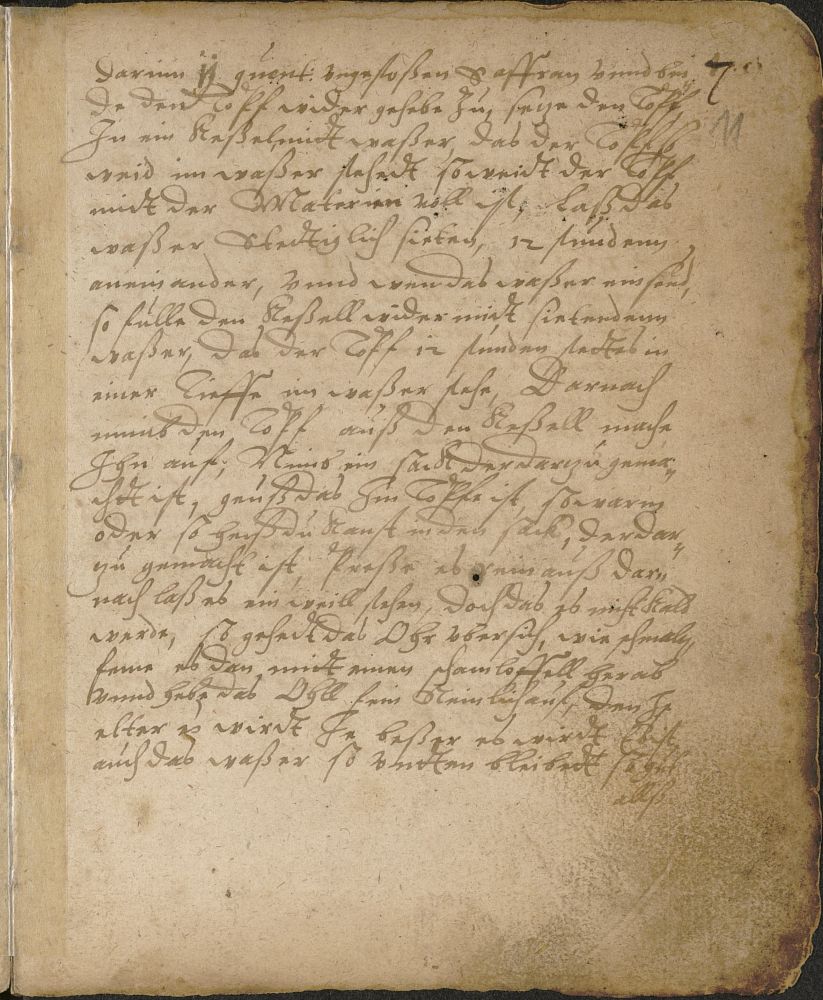 darinn ij quent: vngestoßen Saffran vnnd bin 7
de den Topff wider gehebe zu, setze den Topff 11
In ein Keßel mitt waßer, das der Topff so
weid im waßer stehedt soweidt der Topff
midt der Materien voll ist, Laß das
waßer Stedtiglich sieten, 12 stundenn
an ein ander, vnnd wen das waßer ein seud,
so fulle den Keßell wider midt sietendenn
waßer, das der Topff 12 stunden stettes in
einer Tieffe im waßer stehe, Darnach
nimb den Topff auß den Keßell mache
Ihn auf, Nimb ein sack der darzu gema„
chtt ist, geuß das Im Topffe ist, so warm
oder so heiß du kanst in den sack, der dar„
zu gemacht ist, Preße es rein auß dar„
nach laß es ein weill stehen, doch das es nicht kald
werde, so gehedt das Ohl vbersich, wie schmaltz,
feme es dan midt einen schaumloffell herab
vnnd hebe das Ohll fein Reinlich auf, den Je
elter es wirdt Je beßer es wirdt Es ist
auch das waßer so vntten bleibedt so gut
alß